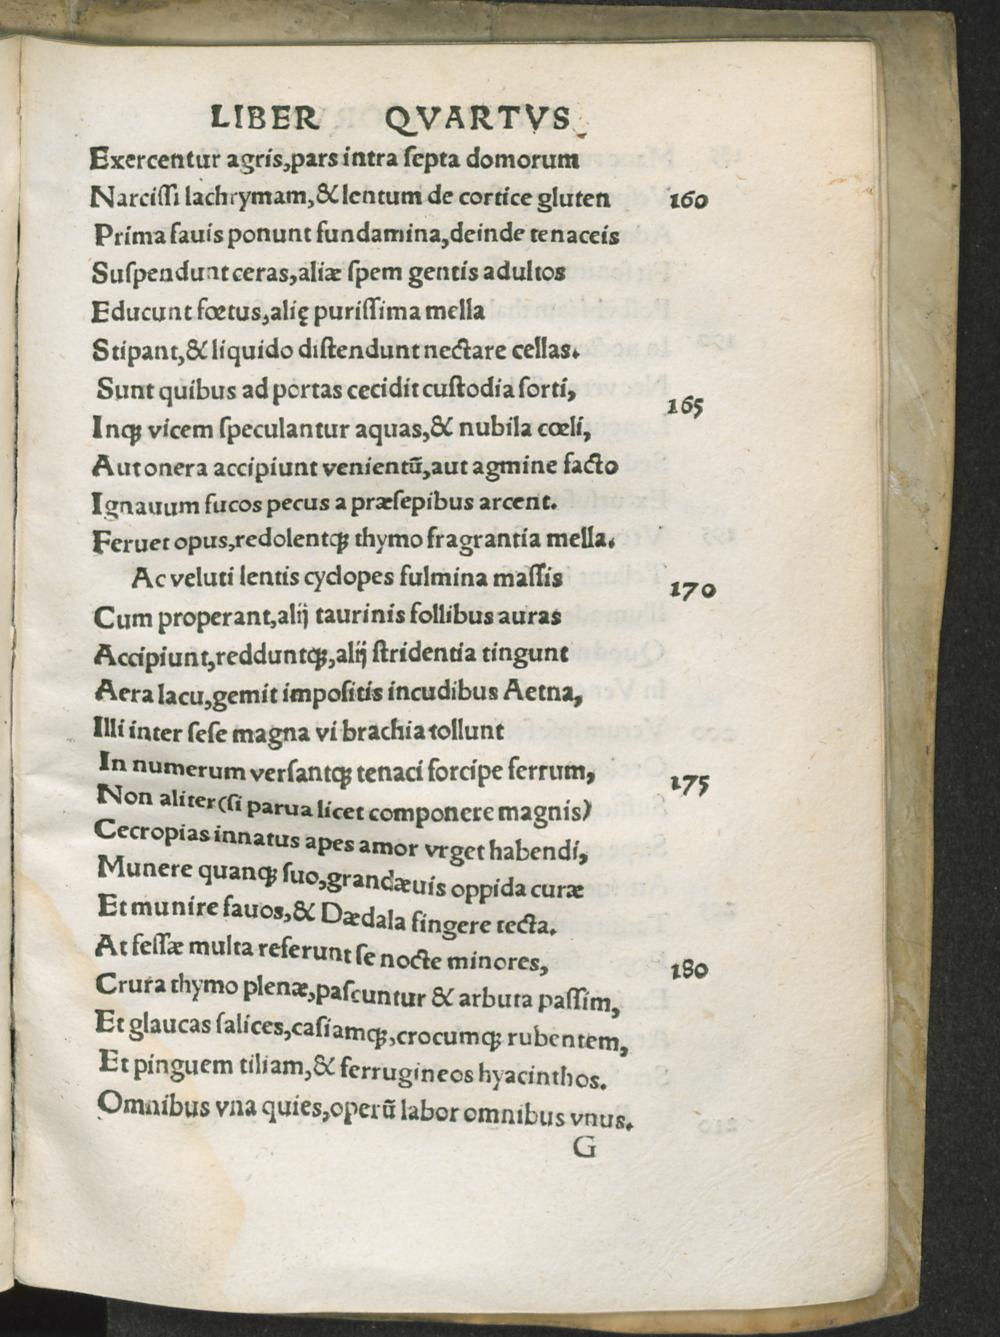 LIBER QVARTVS
Exercentur agris,pars intra ſepta domorum
Narciſſi lachrymam,&lentum de cortice gluten 160
Prima fauis ponunt fundamina,deinde tenaceis
Suſpendunt ceras,aliæ ſpem gentis adultos
Educunt fœtus,alię puriſſima mella
Stipant,&liquido diſtendunt nectare cellas.
Sunt quibus ad portas cecidit cuſtodia ſorti, 165
Inqꝫ vicem ſpeculantur aquas,& nubila cœli,
Aut onera accipiunt venientū,aut agmine facto
Ignauum fucos pecus a præſepibus arcent.
Feruet opus,redolentqꝫ thymo fragrantia mella.
Ac veluti lentis cyclopes fulmina maſſis 170
Cum properant,alij taurinis follibus auras
Accipiunt,redduntqꝫ,alij ſtridentia tingunt
Aera lacu,gemit impoſitis incudibus Aetna,
Illi inter ſeſe magna vi brachia tollunt
In numerum verſantqꝫ tenaci forcipe ferrum, 175
Non aliter(ſi parua licet componere magnis)
Cecropias innatus apes amor vrget habendi,
Munere quanqꝫ ſuo,grandæuis oppida curæ
Et munire fauos,& Dædala fingere tecta.
At feſſæ multa referunt ſe nocte minores, 180
Crura thymo plenæ,paſcuntur & arbuta paſſim,
Et glaucas ſalices,caſiamqꝫ,crocumqꝫ rubentem,
Et pinguem tiliam,& ferrugineos hyacinthos.
Omnibus vna quies,operū labor omnibus vnus.
G